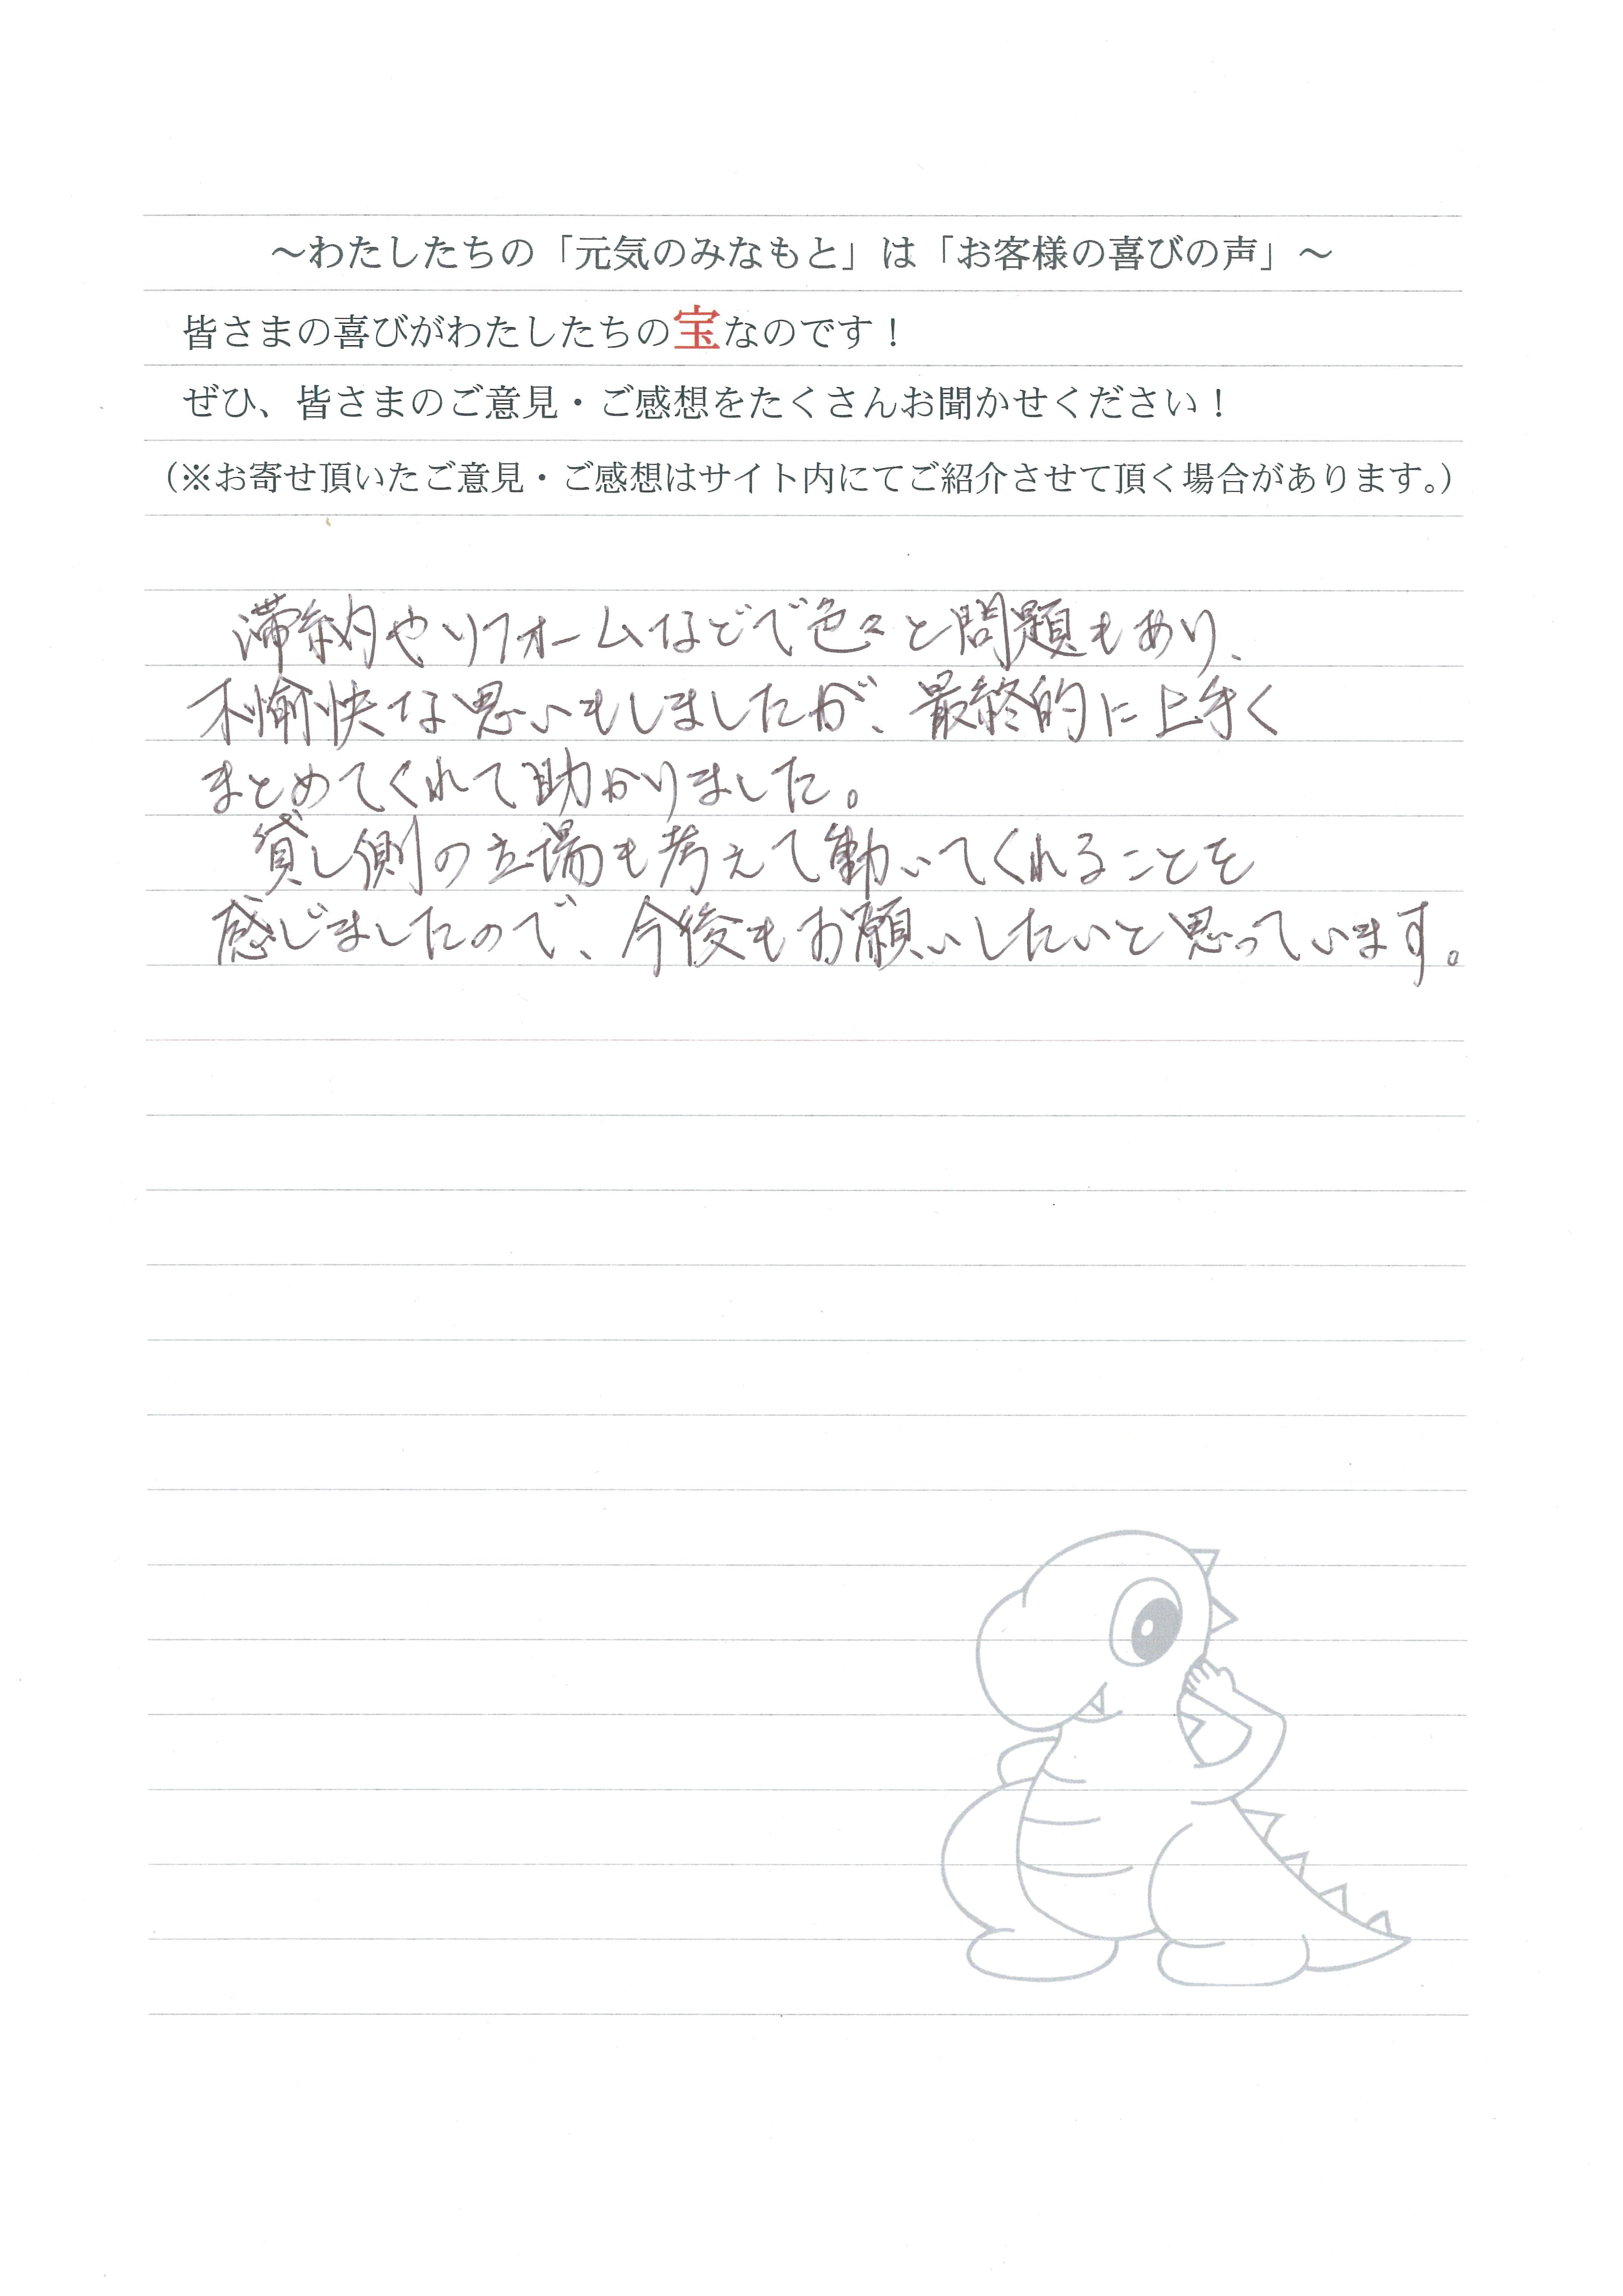 ～わたしたちの「元気のみなもと」は「お客様の喜びの声」～
皆さまの喜びがわたしたちの宝なのです！
ぜひ、皆さまのご意見・ご感想をたくさんお聞かせください！
（※お寄せ頂いたご意見・ご感想はサイト内にてご紹介させて頂く場合があります。）
滞納やリフォームなどで色々と問題もあり、
不愉快な思いもしましたが、最終的に上手く
まとめてくれて助かりました。
貸し側の立場も考えて動いてくれることを
感じましたので、今後もお願いしたいと思っています。